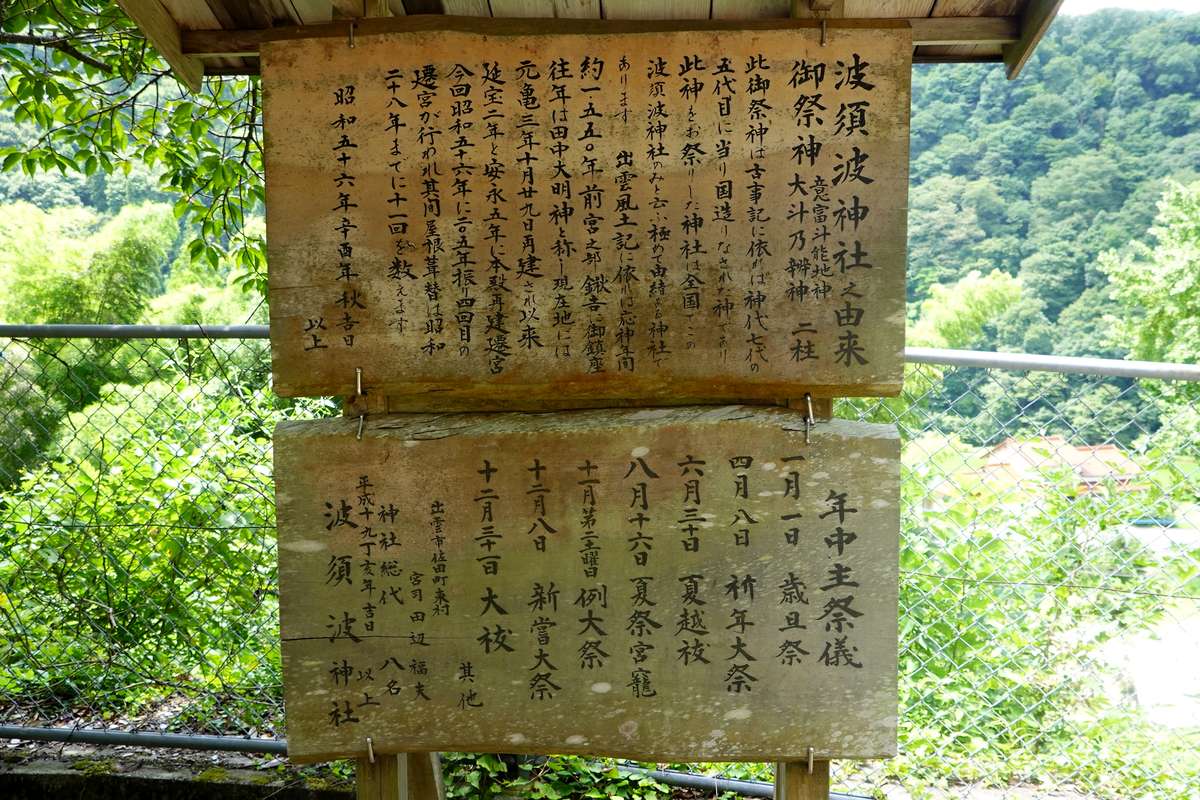 波須波神社之由来
御祭神 意富斗能地神
大斗乃辨神 二柱
此御祭神は古事記に依れば神代七代の
五代目に当り国造りなされた神であり
此神をお祭りした神社は全国でこの
波須波神社のみと云ふ極めて由緒ある神社で
あります 出雲風土記に依れば応神年間
約一五五〇年前宮之部鍬𠮷に御鎮座
往年は田中大明神と称し現在地には
元亀三年十月廿九日再建され以来
延宝二年と安永五年に本殿再建遷宮
今回昭和五十六年に二〇五年振り四回目の
遷宮が行われ其間屋根葺替は昭和
二十八年までに十一回を数えます
昭和五十六年辛酉年 秋吉日
以上
年中主祭儀
一月一日 歳旦祭
四月八日 祈年大祭
六月三十日 夏越祓
八月十六日 夏祭宮竈
十一月第二土曜日 例大祭
十二月八日 新嘗大祭
十二月三十一日 大祓
其他
出雲市佐田町東村
宮司 田辺 福夫
神社総代 八名
平成十九丁亥年吉日 以上
波須波神社